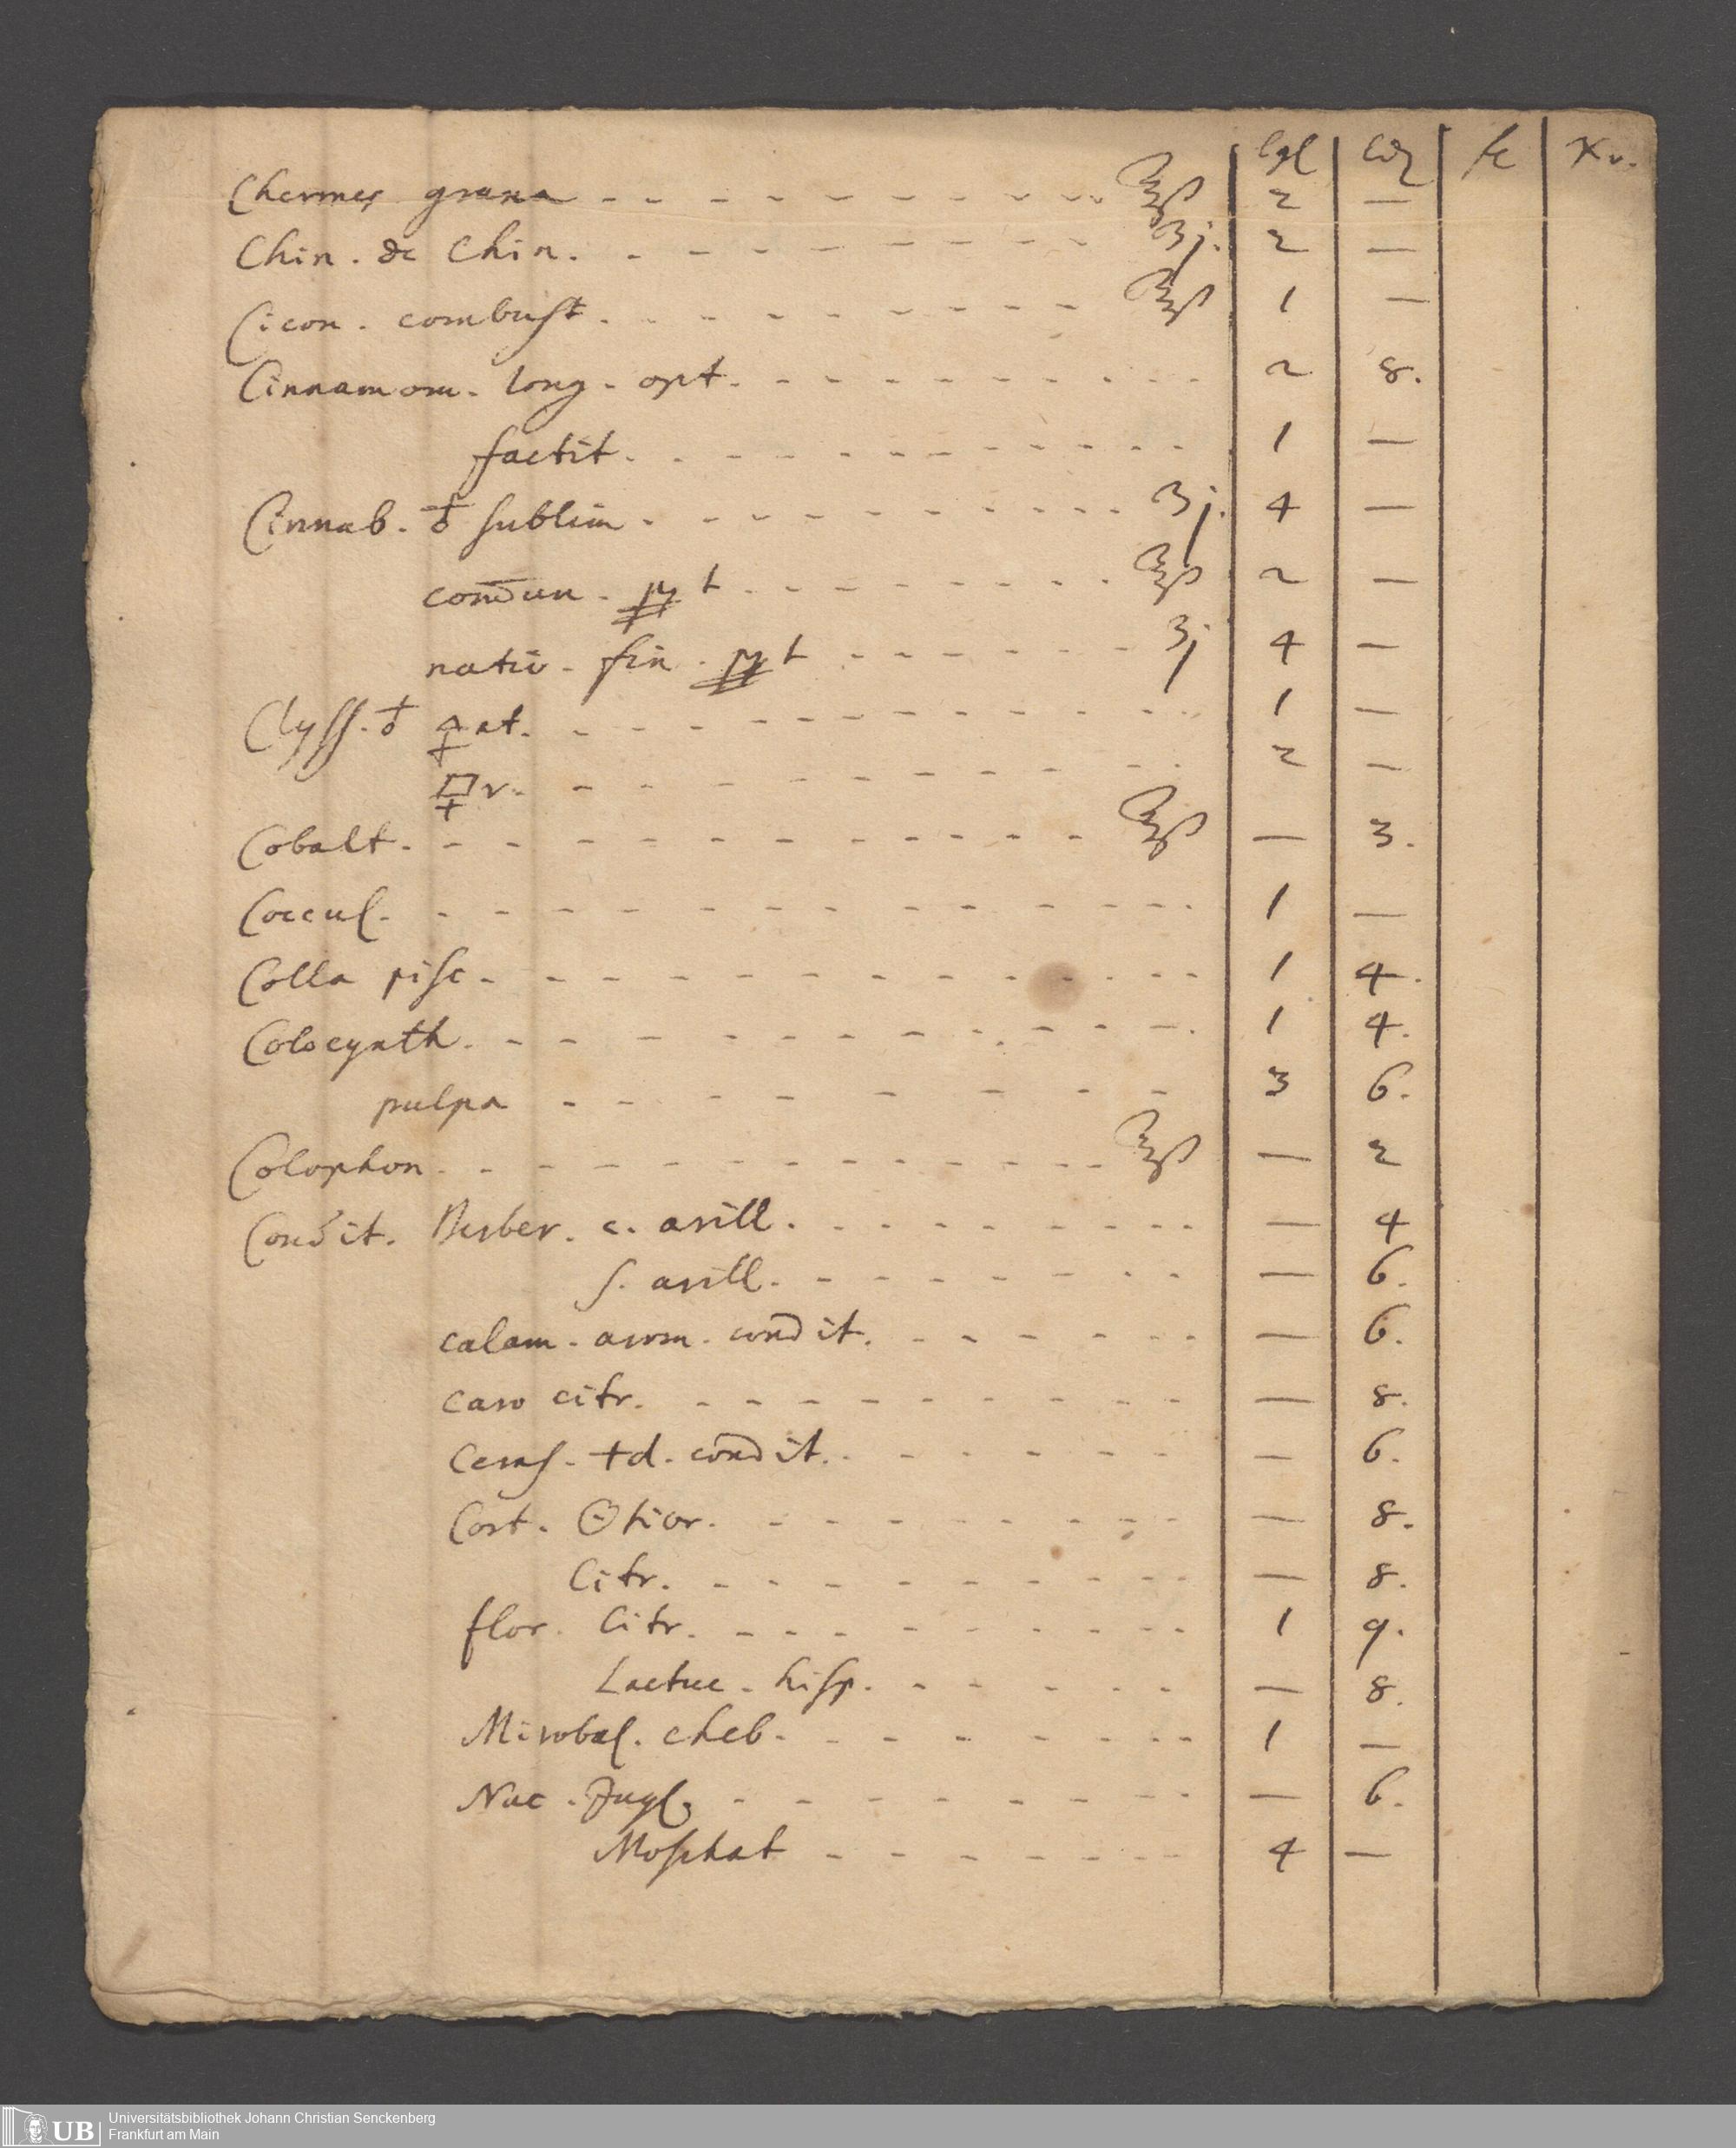 fl Xr.
Chermes grana ℥ß 2 —
Chin. de Chin. ʒj. 2 —
Cicon. combust. ℥ß 1 —
Cinnamom. long. opt. 2 8.
factit. 1 —
Cinnab. ♁ sublim. ʒj. 4 —
com̄un. ppt ℥ß 2 —
nativ. fin. ppt ʒj 4 —
Clyss. ♁ 🜍at. 1 —
🜿r. 2 —
Cobalt. ℥ß — 3.
Coccul. 1 —
Colla pisc. 1 4.
Colocynth. 1 4.
pulpa 3 6.
Colophon. ℥ß — 2
Condit. Berber. c. arill. — 4
s. arill. — 6.
calam. arom. condit. — 6.
caro citr. — 8.
Ceras. +d. condit. — 6.
Cort. 🜔tior. — 8.
Citr. — 8.
flor. Citr. 1 9.
Lactuc. hisp. — 8.
Mirobal. cheb. 1 —
Nuc. Jugl. — 6.
Moschat 4 —
UB Universitätsbibliothek Johann Christian Senckenberg
Frankfurt am Main